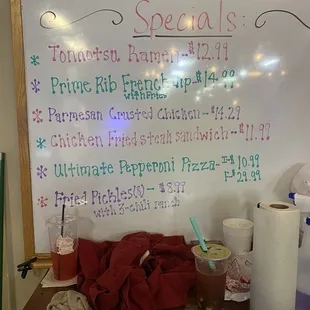 Specials:
* Tonnotsu Ramen - $12.99
* Prime Rib French Dip - $14.99
with fries
* Parmesan Crusted Chicken - $14.29
* Chicken Fried steak sandwich - $11.99
* Ultimate Pepperoni Pizza - I-$10.99
F-$29.99
* Fried Pickles(s) - $8.99
with 3-chili ranch